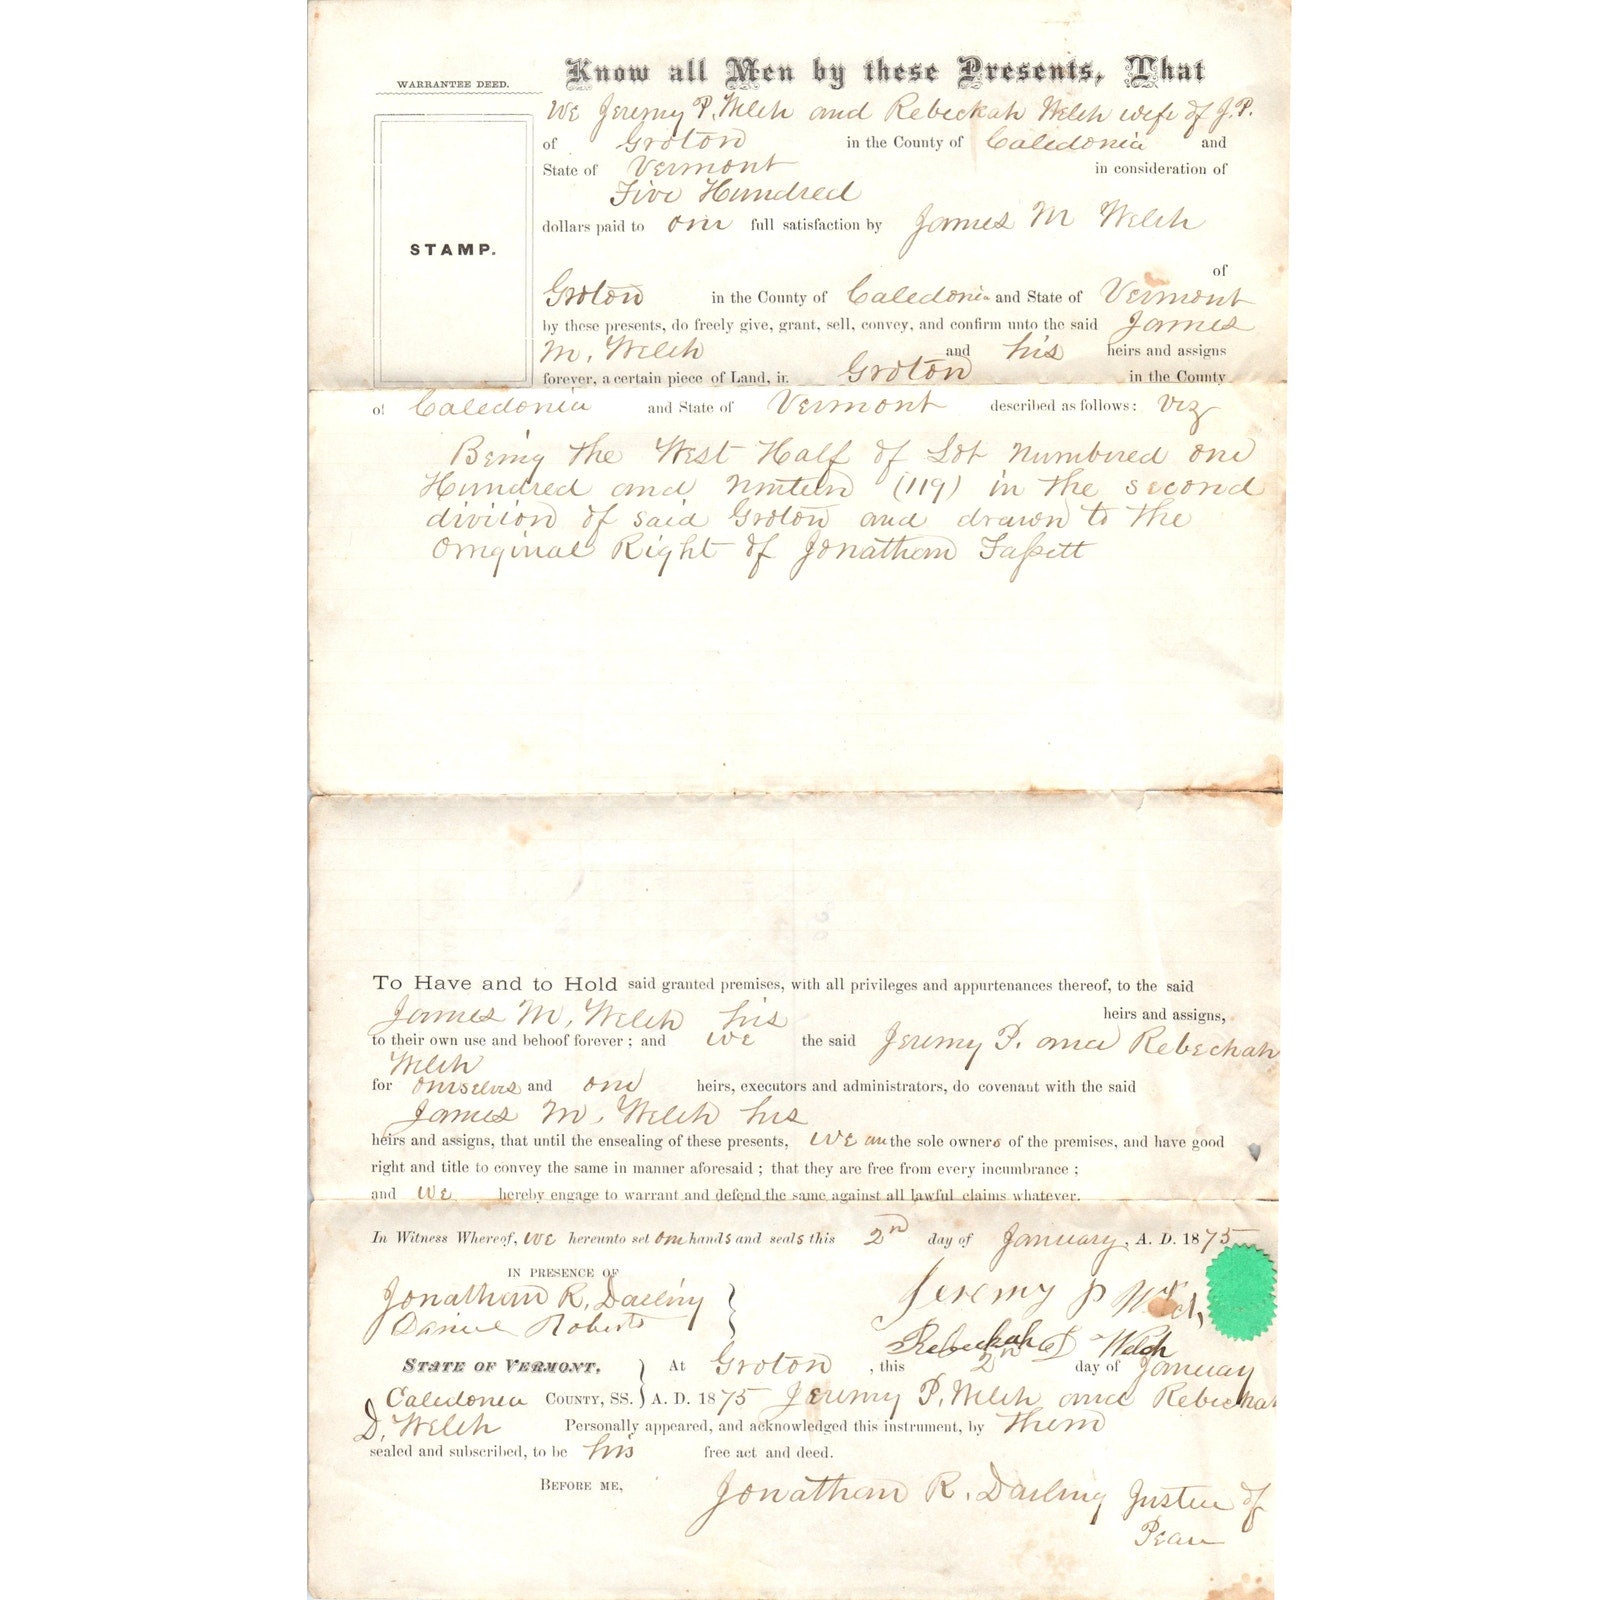 WARRANTEE DEED.
Know all Men by these Presents, That
We Jeremy P. Welch and Rebeckah Welch wife of J.P.
of Groton in the County of Caledonia and
State of Vermont in consideration of
Five Hundred
dollars paid to our full satisfaction by James M Welch
STAMP.
of
Groton in the County of Caledonia and State of Vermont
by these presents, do freely give, grant, sell, convey, and confirm unto the said James
M. Welch and his heirs and assigns
forever, a certain piece of Land, in Groton in the County
of Caledonia and State of Vermont described as follows: viz
Being the West Half of Lot Numbered one
Hundred and Ninteen (119) in the second
divicion of said Groton and drawn to the
Original Right of Jonathan Fassett
To Have and to Hold said granted premises, with all privileges and appurtenances thereof, to the said
James M. Welch his heirs and assigns,
to their own use and behoof forever; and we the said Jeremy P. and Rebeckah
Welch
for ourselves and our heirs, executors and administrators, do covenant with the said
James M. Welch his
heirs and assigns, that until the ensealing of these presents, we are the sole owners of the premises, and have good
right and title to convey the same in manner aforesaid; that they are free from every incumbrance;
and we hereby engage to warrant and defend the same against all lawful claims whatever.
In Witness Whereof, we hereunto set our hands and seals this 2nd day of January, A. D. 1875
IN PRESENCE OF
Jonathan R. Darling
Daniel Roberts
Jeremy P Welch
Rebeckah D Welch
STATE OF VERMONT, At Groton, this 2nd day of January
Caledonia COUNTY, SS. A. D. 1875 Jeremy P. Welch and Rebeckah
D. Welch Personally appeared, and acknowledged this instrument, by them
sealed and subscribed, to be his free act and deed.
BEFORE ME, Jonathan R. Darling Justice of
Peace